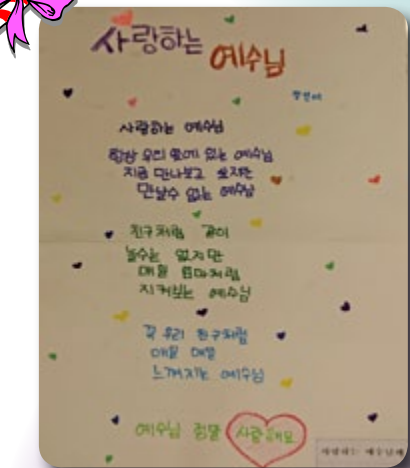 사랑하는 예수님
사랑하는 예수님
항상 우리 옆에 있는 예수님
지금 만나보고 싶지만
만날수 없는 예수님
친구처럼 같이
놀수는 없지만
매일 엄마처럼
지켜보는 예수님
꼭 우리 친구처럼
매일 매일
느껴지는 예수님
예수님 정말 사랑해요
사랑하는 예수님께